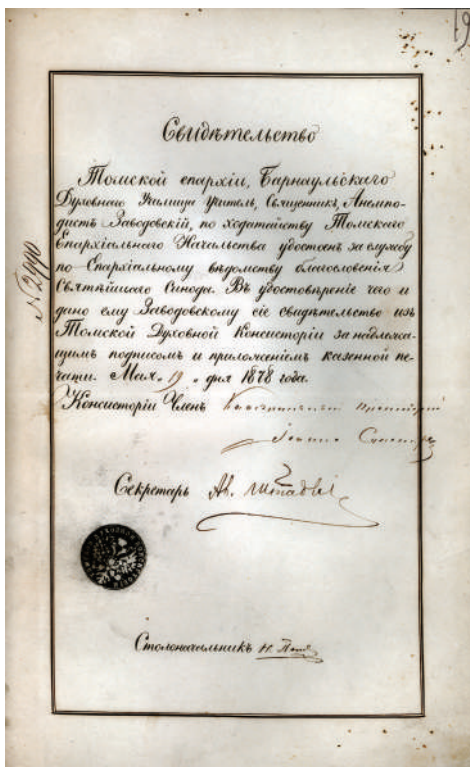 19
Свидѣтельство
Томской епархіи, Барнаульскаго
Духовнаго Училища Учитель, Священникъ, Анемпо-
дистъ Заводовскій, по ходатайству Томскаго
Епархіальнаго Начальства удостоенъ за службу
по Епархіальному вѣдомству благословенія
Святѣйшаго Синода. Въ удостовѣреніе чего и
дано ему Заводовскому сіе свидѣтельство изъ
Томской Духовной Консисторіи за надлежа-
щимъ подписомъ и приложеніемъ казенной пе-
чати. Мая „19„ дня 1878 года.
№ 2990
Консисторіи Членъ
Іоаннъ
Секретарь
Столоначальникъ